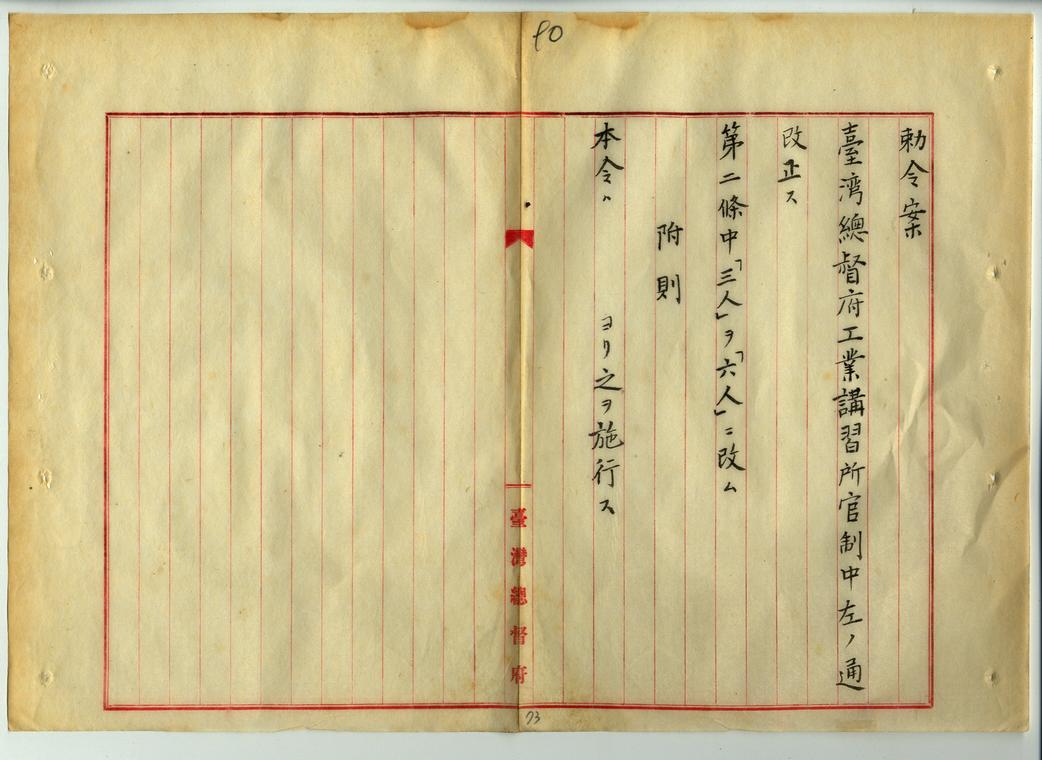 90
勅令案
臺湾總督府工業講習所官制中左ノ通
改正ス
第二條中「三人」ヲ「六人」ニ改ム
附則
本令ハ　　　ヨリ之ヲ施行ス
臺灣總督府
73